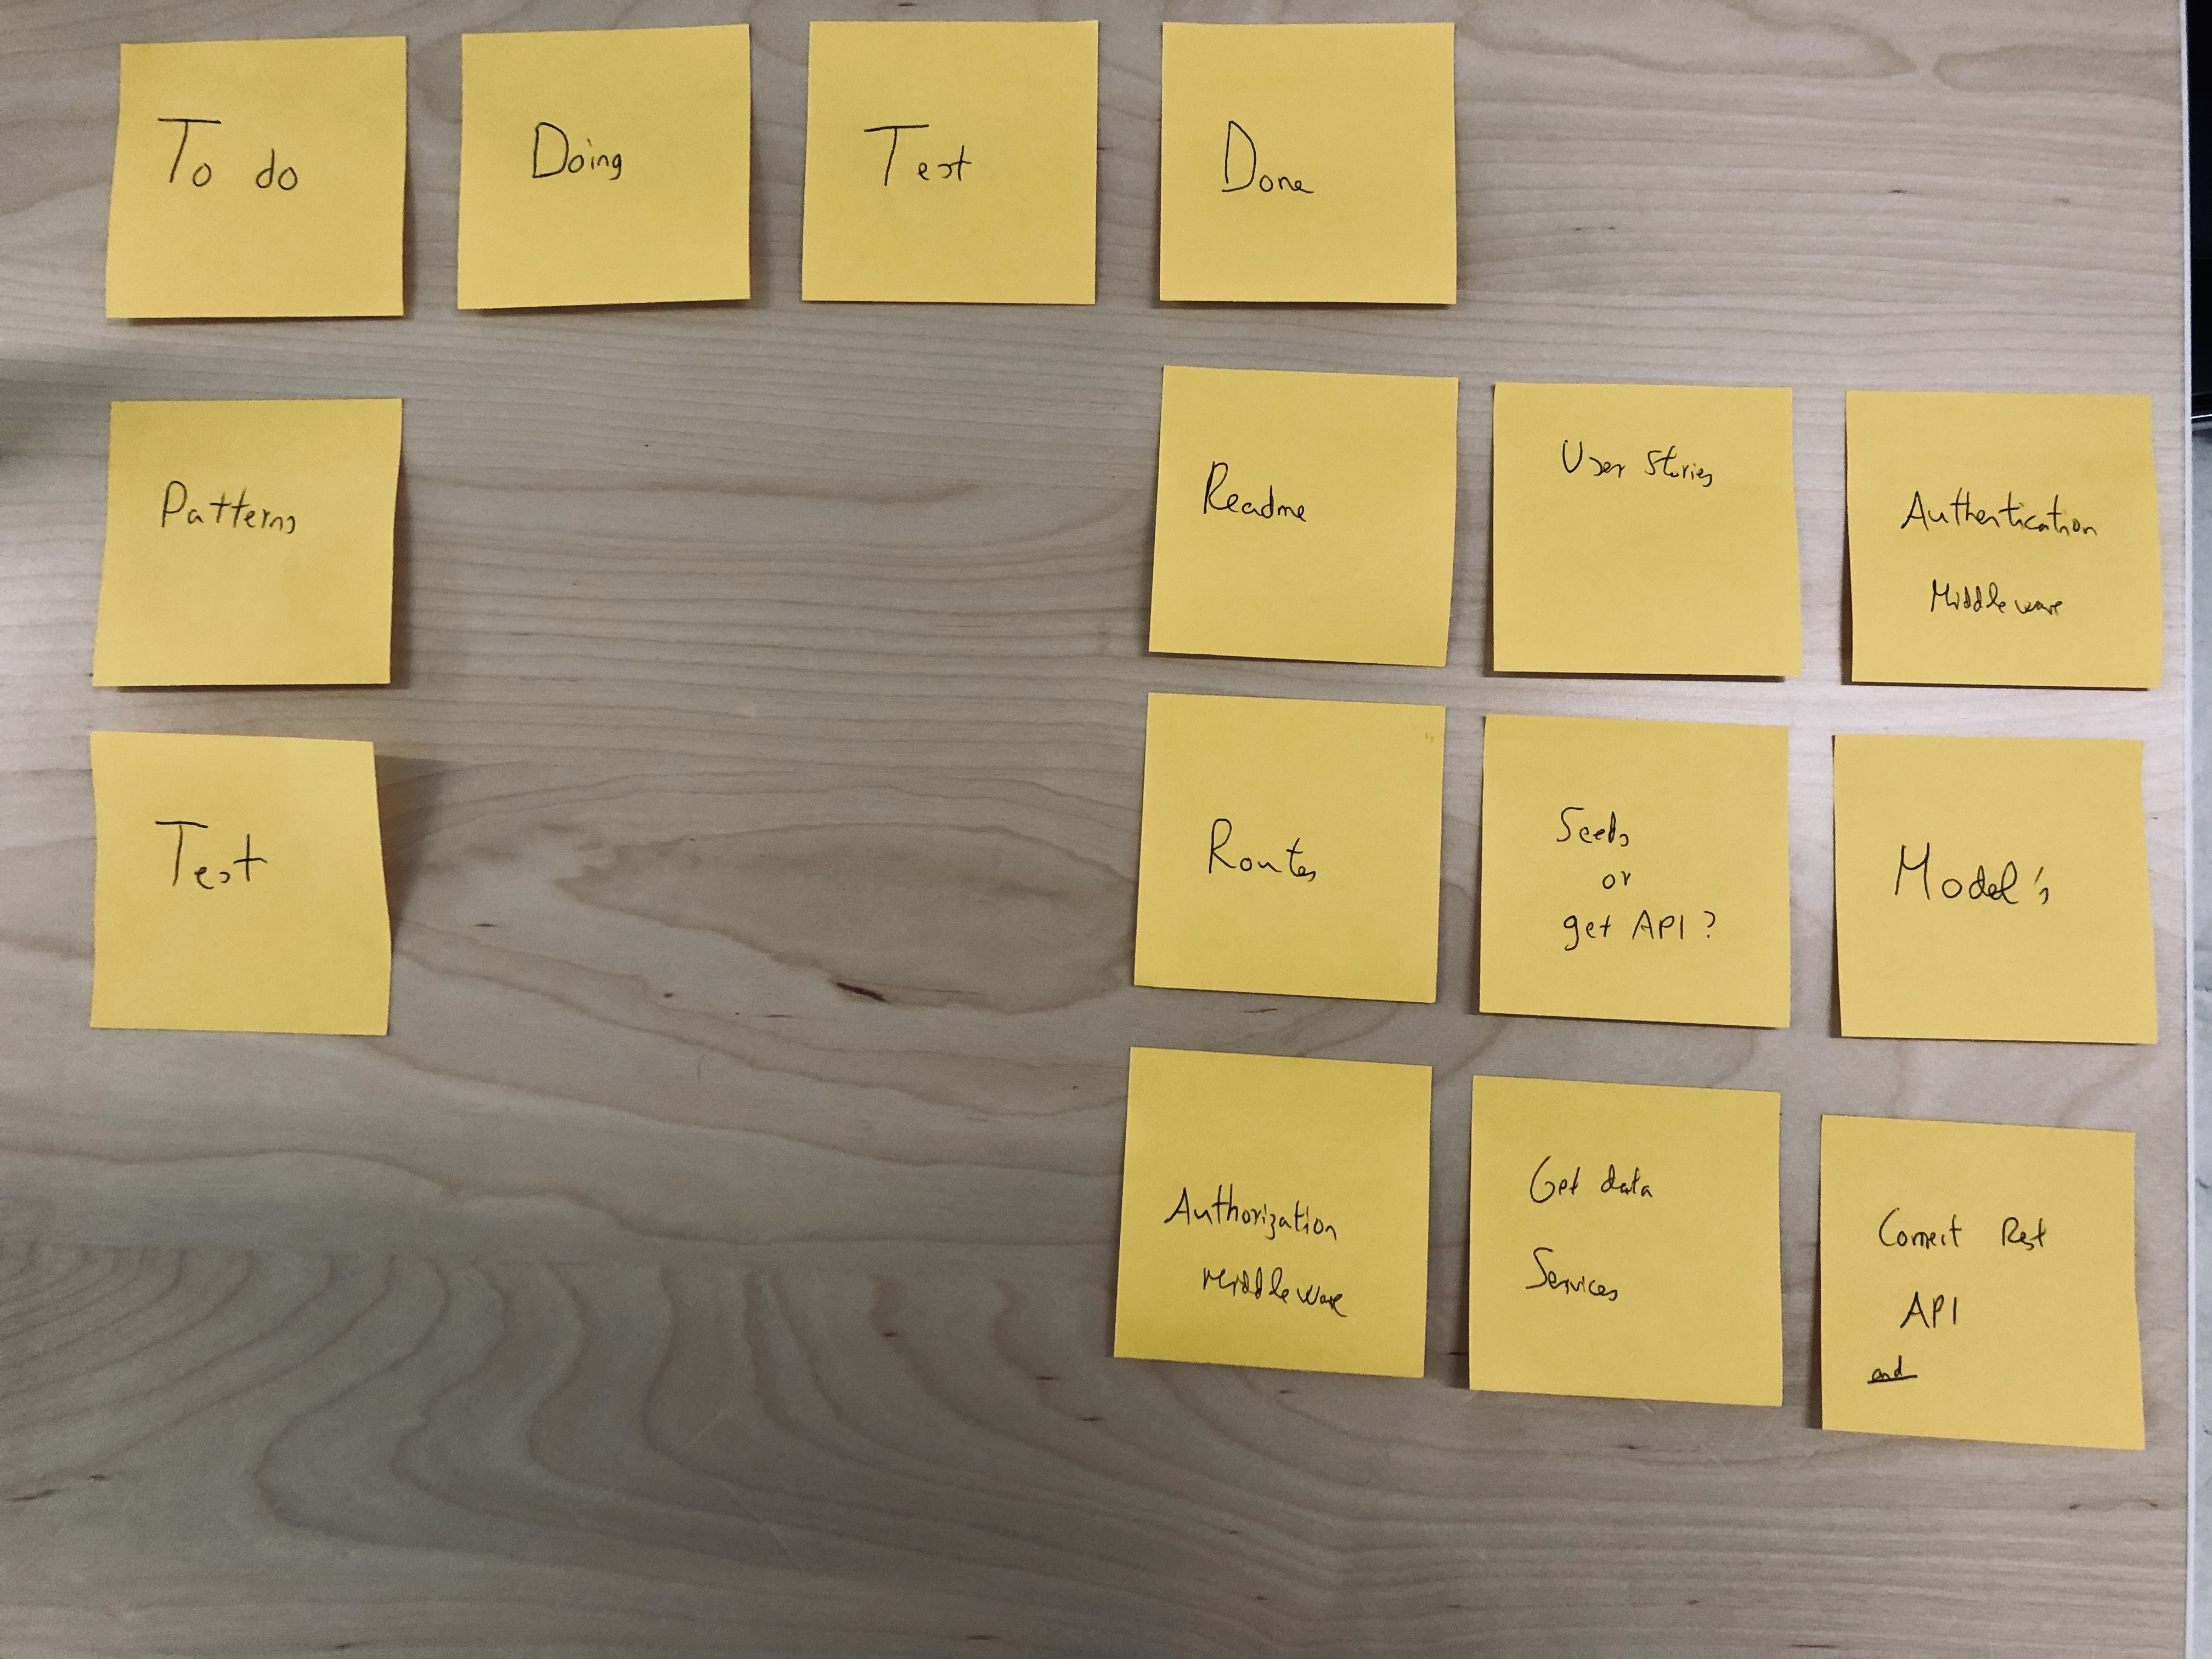 To do
Doing
Test
Done
Patterns
Readme
User Stories
Authentication
Middleware
Test
Routes
Seeds
or
get API?
Model's
Authorization
Middleware
Get data
Services
Correct Rest
API
end